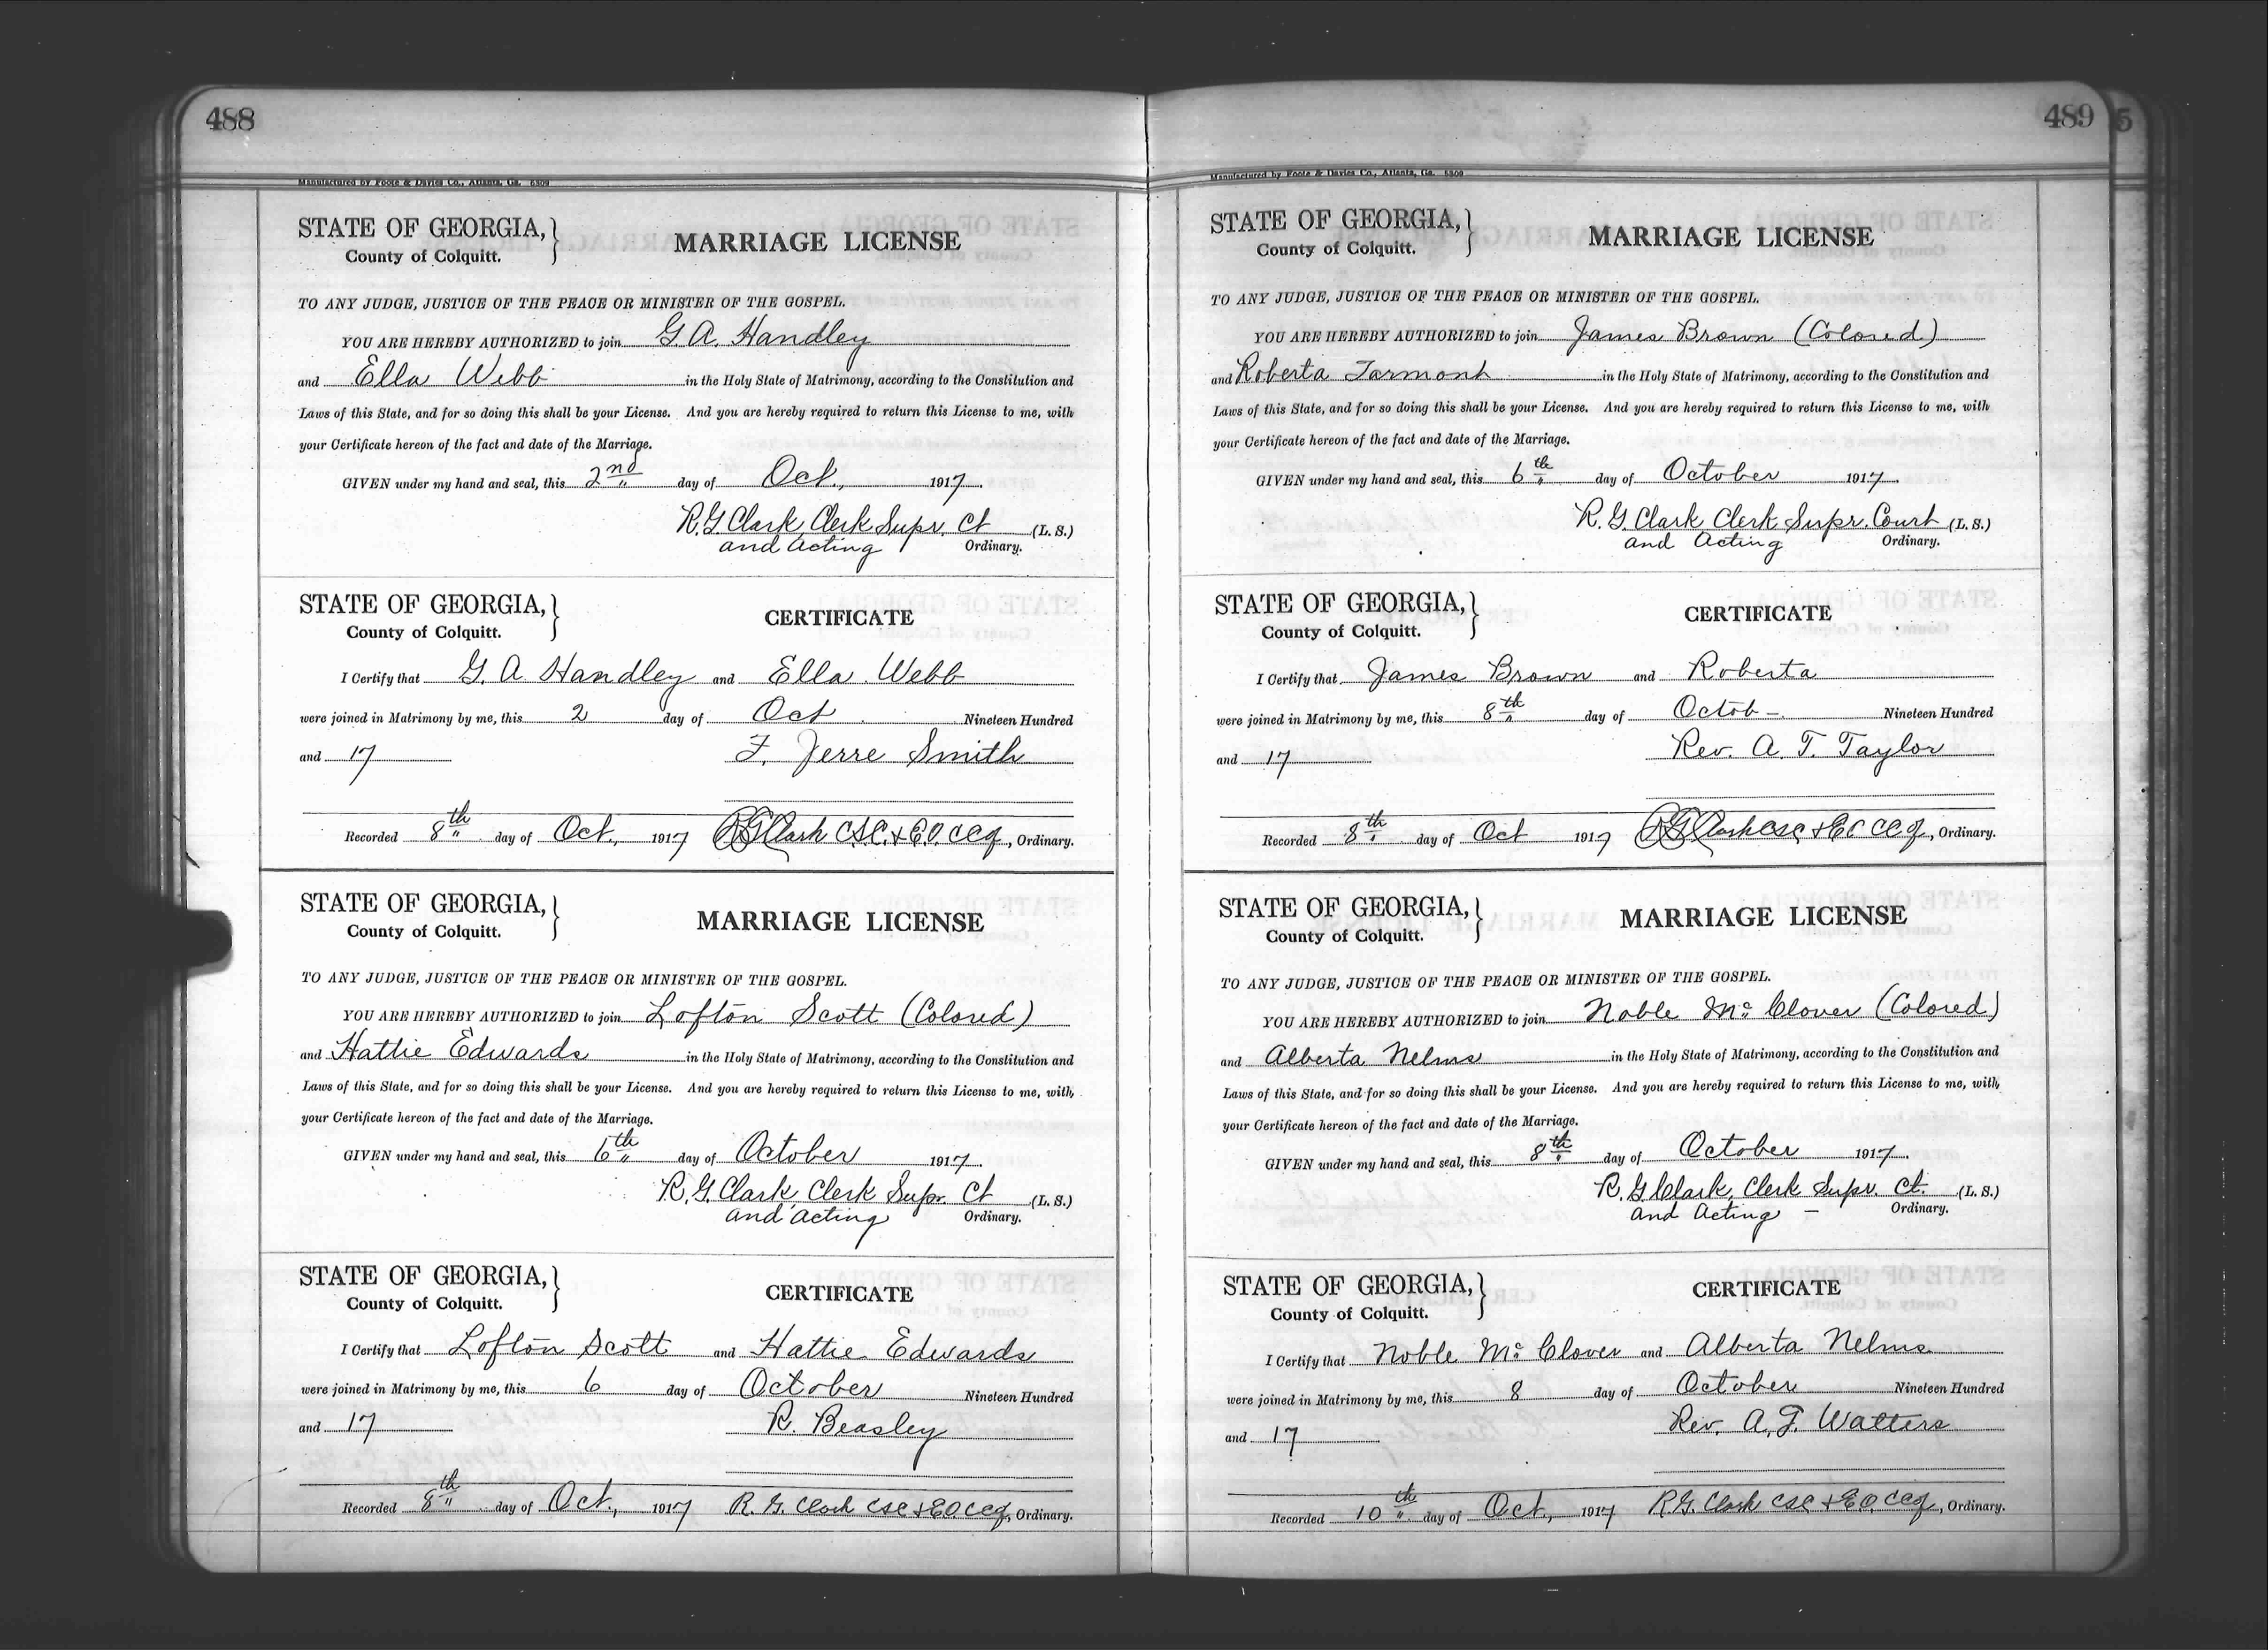 488
Manufactured by Foote & Davies Co., Atlanta, Ga. 5309
STATE OF GEORGIA,
County of Colquitt.
MARRIAGE LICENSE
TO ANY JUDGE, JUSTICE OF THE PEACE OR MINISTER OF THE GOSPEL.
YOU ARE HEREBY AUTHORIZED to join G. A. Handley
and Ella Webb in the Holy State of Matrimony, according to the Constitution and
Laws of this State, and for so doing this shall be your License. And you are hereby required to return this License to me, with
your Certificate hereon of the fact and date of the Marriage.
GIVEN under my hand and seal, this 2nd day of Oct., 1917.
R. G. Clark, Clerk Supr. Ct (L. S.)
and Acting Ordinary.
STATE OF GEORGIA,
County of Colquitt.
CERTIFICATE
I Certify that G. A Handley and Ella Webb
were joined in Matrimony by me, this 2 day of Oct Nineteen Hundred
and 17
F. Jerre Smith
Recorded 8th day of Oct., 1917 R G Clark C.S.C. & E.O. CCof, Ordinary.
STATE OF GEORGIA,
County of Colquitt.
MARRIAGE LICENSE
TO ANY JUDGE, JUSTICE OF THE PEACE OR MINISTER OF THE GOSPEL.
YOU ARE HEREBY AUTHORIZED to join Lofton Scott (Colored)
and Hattie Edwards in the Holy State of Matrimony, according to the Constitution and
Laws of this State, and for so doing this shall be your License. And you are hereby required to return this License to me, with
your Certificate hereon of the fact and date of the Marriage.
GIVEN under my hand and seal, this 6th day of October 1917.
R. G. Clark, Clerk Supr. Ct (L. S.)
and Acting Ordinary.
STATE OF GEORGIA,
County of Colquitt.
CERTIFICATE
I Certify that Lofton Scott and Hattie Edwards
were joined in Matrimony by me, this 6 day of October Nineteen Hundred
and 17
R. Beasley
Recorded 8th day of Oct., 1917 R. G. Clark CSC & E.O. CCof, Ordinary.
489
5
Manufactured by Foote & Davies Co., Atlanta, Ga. 5309
STATE OF GEORGIA,
County of Colquitt.
MARRIAGE LICENSE
TO ANY JUDGE, JUSTICE OF THE PEACE OR MINISTER OF THE GOSPEL.
YOU ARE HEREBY AUTHORIZED to join James Brown (Colored)
and Roberta in the Holy State of Matrimony, according to the Constitution and
Laws of this State, and for so doing this shall be your License. And you are hereby required to return this License to me, with
your Certificate hereon of the fact and date of the Marriage.
GIVEN under my hand and seal, this 6th day of October 1917.
R. G. Clark Clerk Supr. Court (L. S.)
and Acting Ordinary.
STATE OF GEORGIA,
County of Colquitt.
CERTIFICATE
I Certify that James Brown and Roberta
were joined in Matrimony by me, this 8th day of Octob- Nineteen Hundred
and 17
Rev. A. T. Taylor
Recorded 8th day of Oct 1917 R G Clark CSC & EO CCof, Ordinary.
STATE OF GEORGIA,
County of Colquitt.
MARRIAGE LICENSE
TO ANY JUDGE, JUSTICE OF THE PEACE OR MINISTER OF THE GOSPEL.
YOU ARE HEREBY AUTHORIZED to join Noble Mc Clover (Colored)
and Alberta Nelms in the Holy State of Matrimony, according to the Constitution and
Laws of this State, and for so doing this shall be your License. And you are hereby required to return this License to me, with
your Certificate hereon of the fact and date of the Marriage.
GIVEN under my hand and seal, this 8th day of October 1917.
R. G. Clark, Clerk Supr. Ct. (L. S.)
and Acting - Ordinary.
STATE OF GEORGIA,
County of Colquitt.
CERTIFICATE
I Certify that Noble Mc Clover and Alberta Nelms
were joined in Matrimony by me, this 8 day of October Nineteen Hundred
and 17
Rev. A. F. Watters
Recorded 10th day of Oct., 1917 R. G. Clark CSC & E.O. CCof, Ordinary.